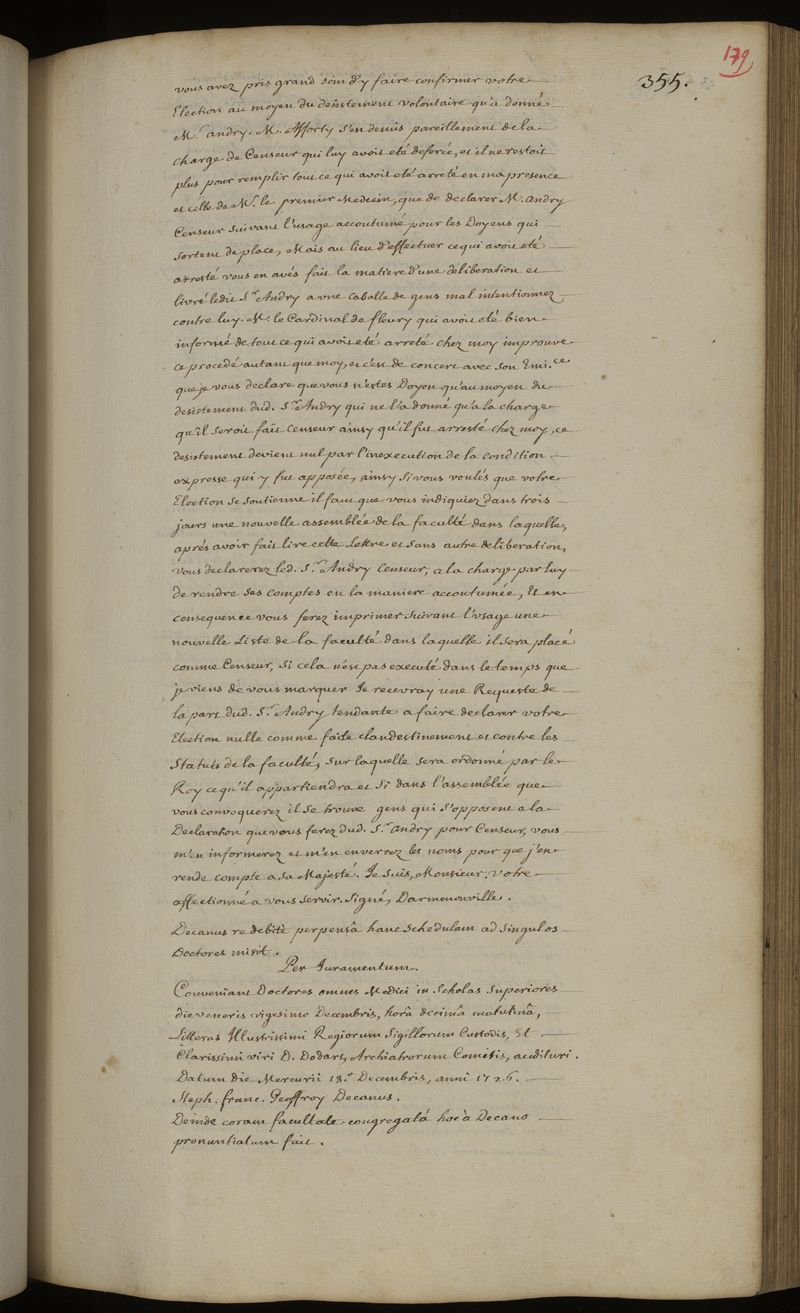 179
355.
vous avez pris grand soin d'y faire confirmer votre
Election au moyen du desistement volontaire qu'a donné
M.r andry. M. Afforty s'en demis pareillement de la
charge de Censeur qui luy avoit eté deferée, et il ne restoit
plus pour remplir tout ce qui avoit eté arreté en ma presence
et celle de M.r le premier Medecin, que de declarer M. andry
Censeur suivant l'usage accoutumé pour les Doyens qui
sortent de place, Mais au lieu d'effectuer ce qui avoit eté
arresté vous en avés fait la matiere d'une deliberation et
livré ledit S.r Andry a une Caballe de gens mal intentionnez
contre luy. M. le Cardinal de fleury qui avoit eté bien
informé de tout ce qui avoit eté arreté chez moy improuve
ce procedé autant que moy, et c'est de concert avec son Emi.ce
que je vous declare que vous n'estes Doyen qu'au moyen du
desistement dud. S.r Andry qui ne l'a donné qu'a la charge
qu'il seroit fait Censeur ainsy qu'il fut arresté chez moy, ce
desistement devient nul par l'inexecution de la condition
expresse qui y fut apposée, ainsy si vous voulés que votre
Election se soutienne il faut que vous indiquiez dans trois
jours une nouvelle assemblée de la faculté dans laquelle,
aprés avoir fait lire cette Lettre et sans autre deliberation,
vous declarerez led. S.r Andry Censeur, a la charge par luy
de rendre ses Comptes en la maniere accoutumée, Et en
consequence vous ferez imprimer suivant l'usage une
nouvelle Liste de la faculté dans laquelle il sera placé
comme Censeur, Si cela n'est pas executé dans le temps que
je viens de vous marquer Je recevray une Requeste de
la part dud. S.r Andry tendante a faire declarer votre
Election nulle comme faite clandestinement et contre les
Statuts de la faculté, sur laquelle sera ordonné par le
Roy ce qu'il appartiendra et Si dans l'assemblée que
vous convoquerez il se trouve gens qui s'opposent a la
Declaration que vous ferez dud. S.r andry pour Censeur, vous
m'en informerez et m'en enverrez les noms pour que j'en
rende compte a sa Majesté. Je suis, Monsieur, votre
affectionné a vous servir. Signé, Darmenonville.
Decanus re debitè perpensâ hanc Schedulam ad Singulos
Doctores misit.
Per Iuramentum.
Conveniant Doctores omnes Medici in Scholas Superiores
die veneris vigesimo Decembris, horâ decimâ matutinâ,
Litteras Illustrissimi Regiorum Sigillorum Custodis, Et
Clarissimi viri D. Dodart, Archiatrorum Comitis, audituri.
Datum die Mercurii 18.a Decembris, anni 1726.
Steph. franc. Geoffroy Decanus.
Deinde coram facultate congregatâ hoc à Decano
pronuntiatum fuit.